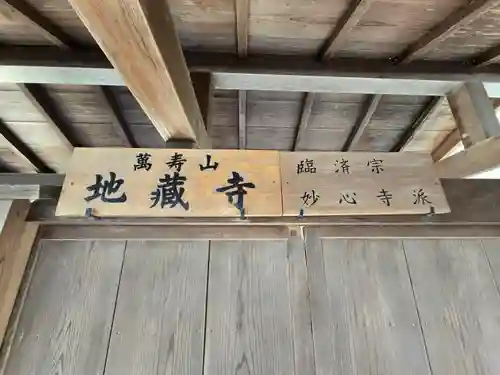 萬寿山
地藏寺
臨済宗
妙心寺派